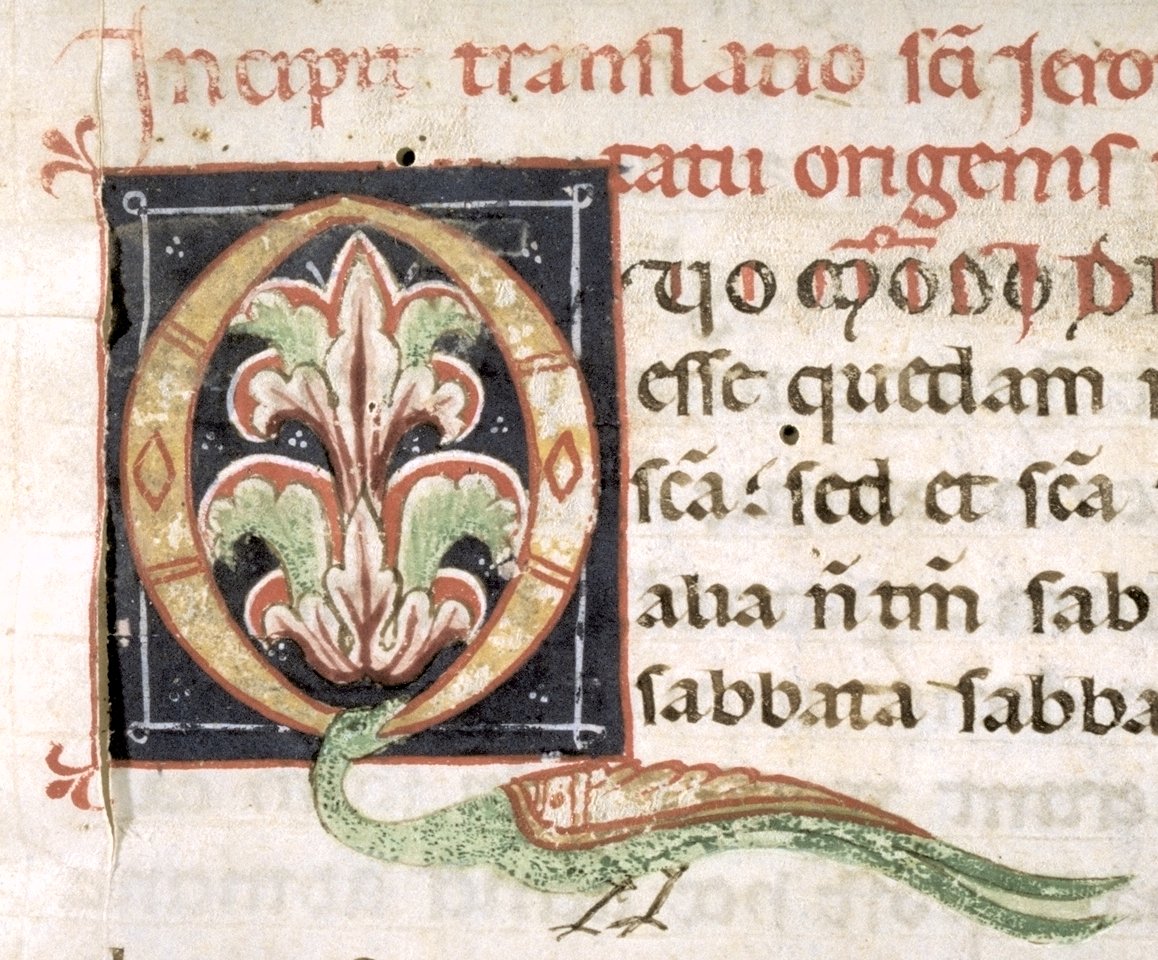 Incipit translatio sc̄i Jero
tatu origenis
Quo m̄odo di
esse quedam
sc̄a: sed et sc̄a
alia n̄ tm̄ sab
sabbata sabba